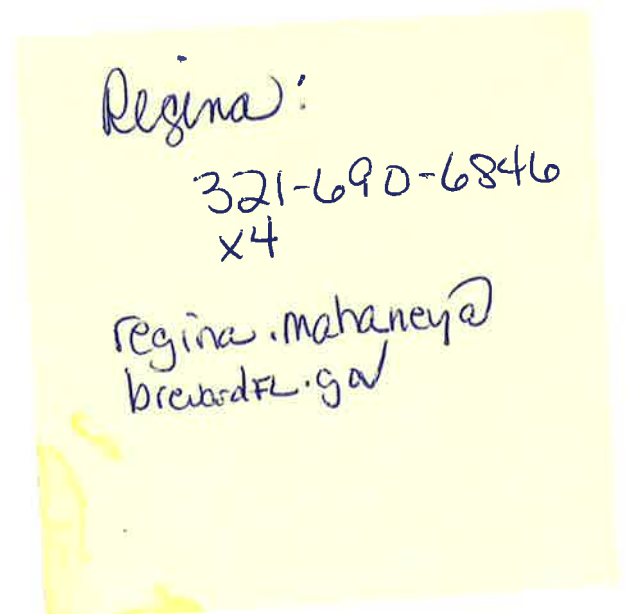 Regina:
321-690-6846
x4
regina.mahaney@
brevardFL.gov